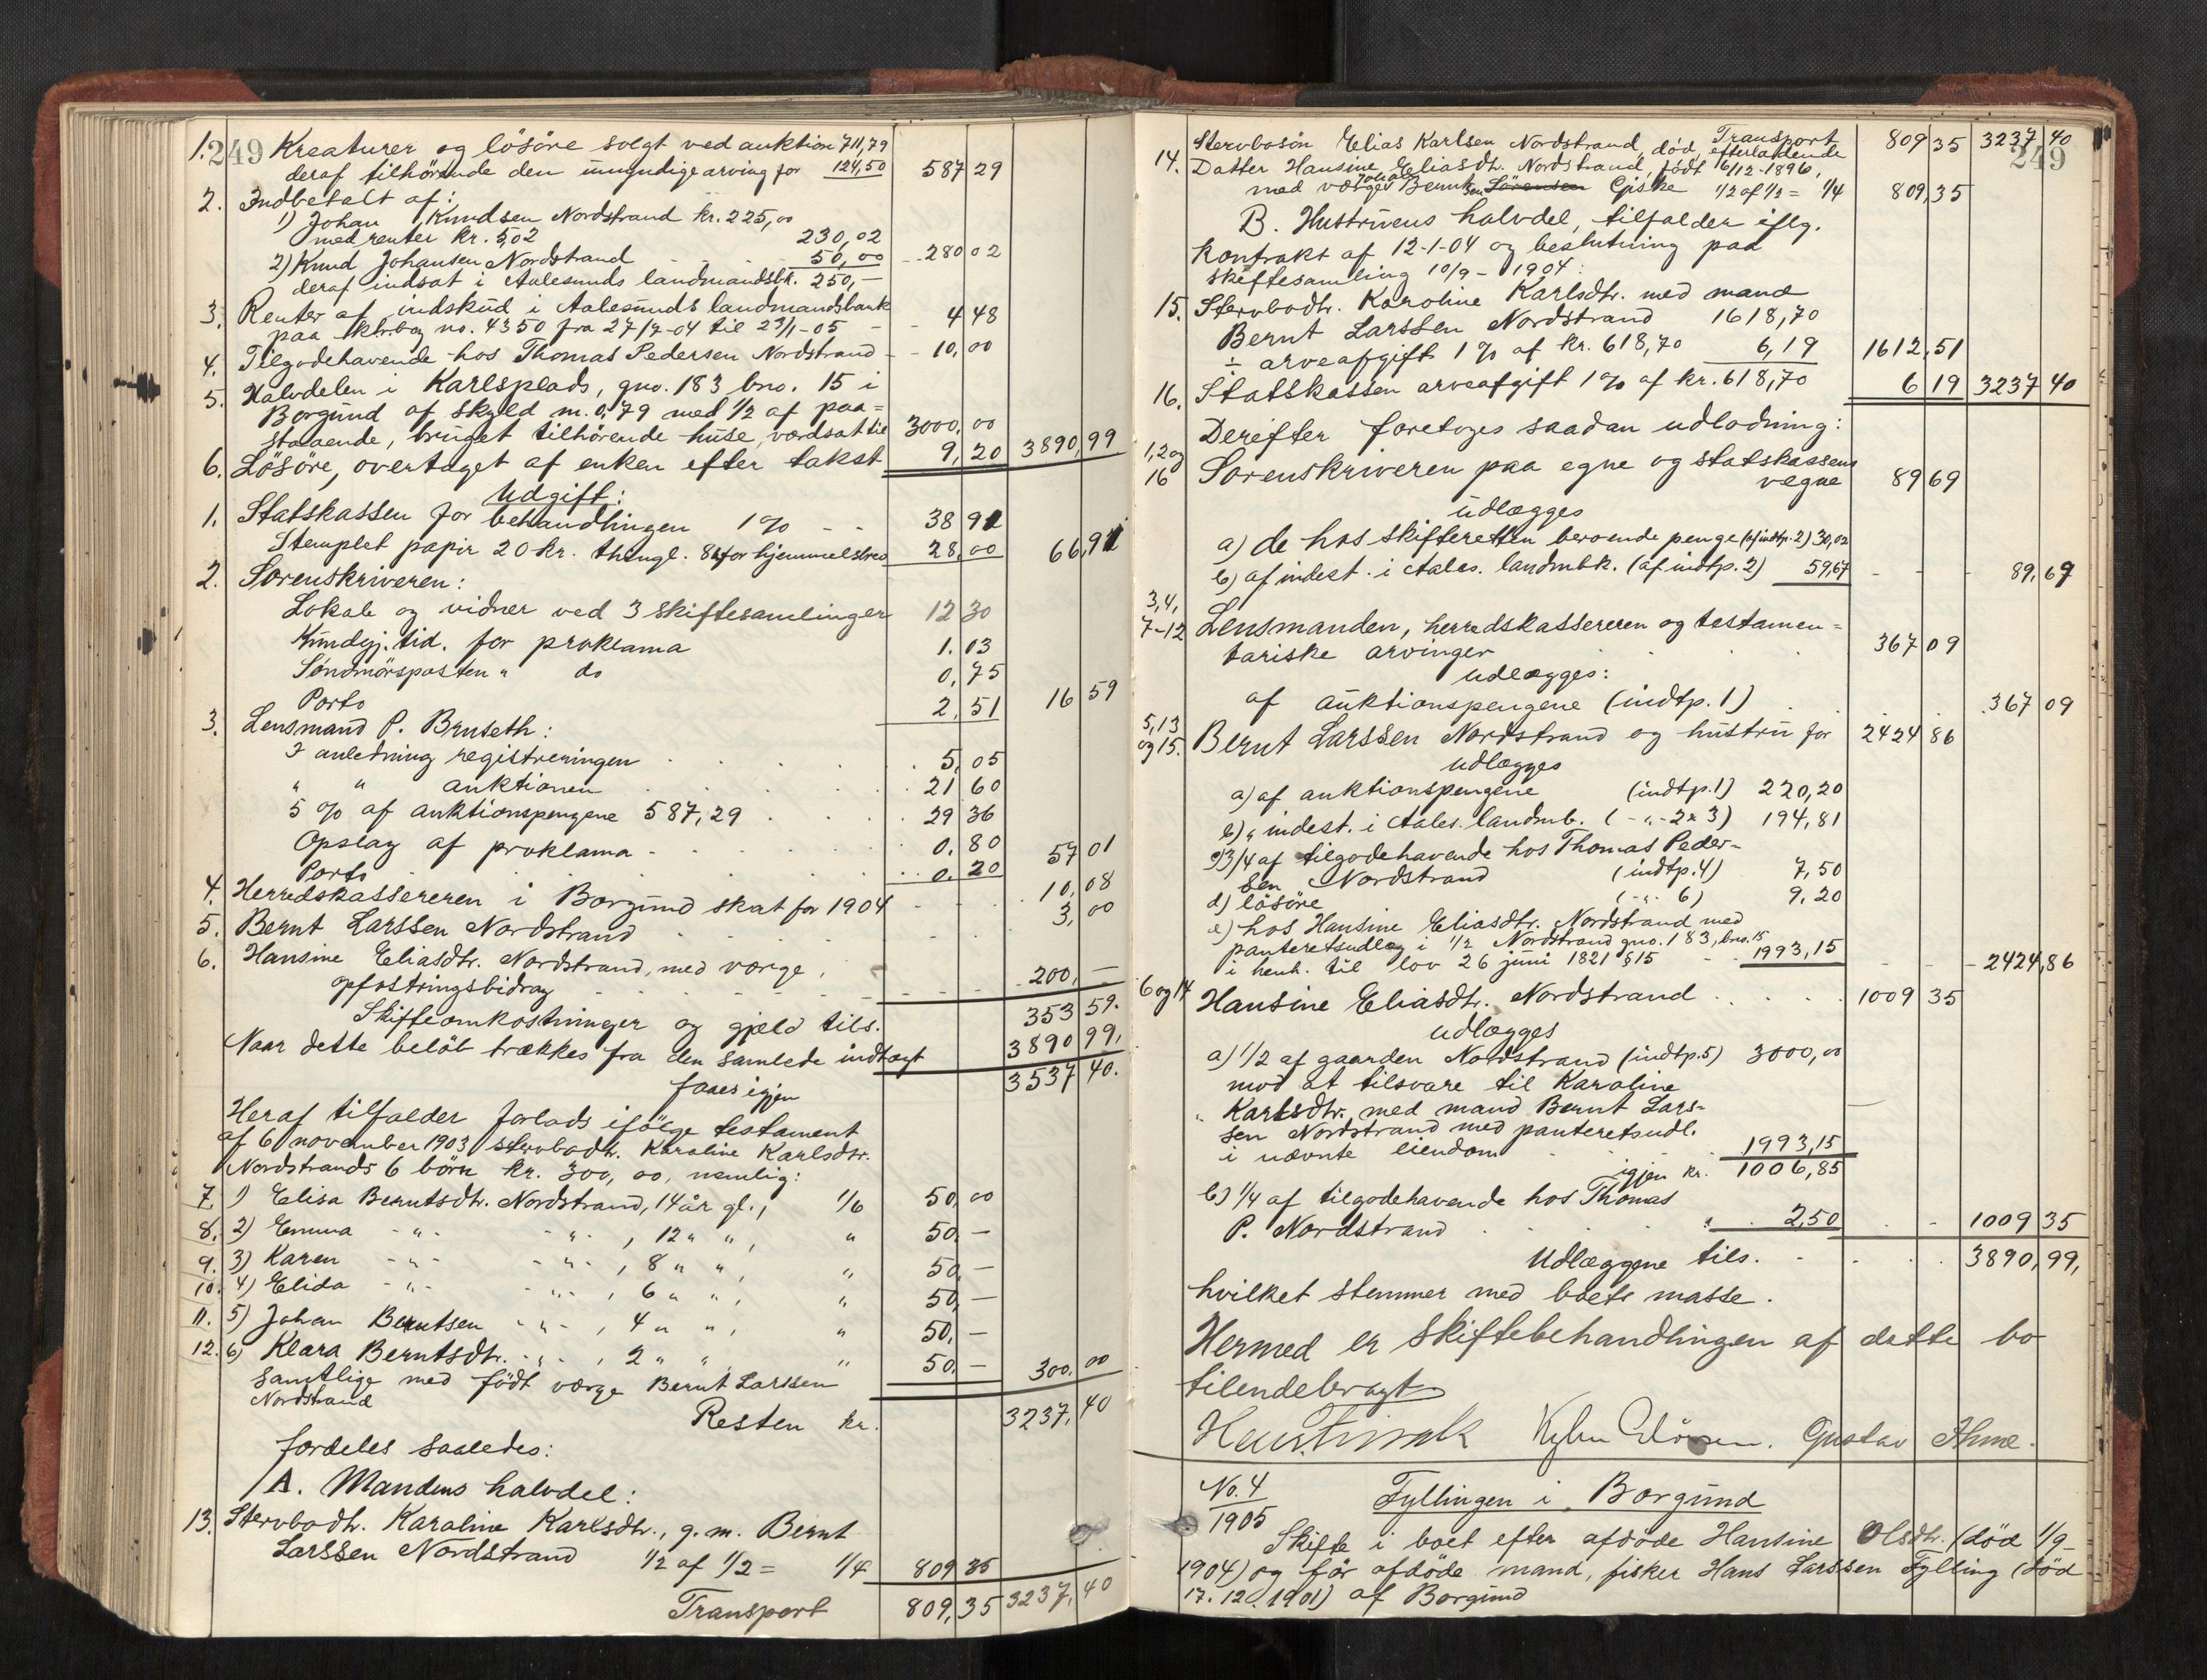 249
1. Kreaturer og lösöre solgt ved auktion 711,79
deraf tilhörende den umyndige arving for 124,50 587 29
2. Indbetalt af:
1) Johan Knudsen Nordstrand kr. 225,00
med renter kr. 5,02 230,02
2) Knud Johansen Nordstrand 50,00 280 02
deraf indsat i Aalesunds landmandsbk. 250,—
3. Renter af indskud i Aalesunds landmandsbank
paa ktrbog no. 4350 fra 27/7-04 til 23/1-05 4 48
4. Tilgodehavende hos Thomas Pedersen Nordstrand 10,00
5. Halvdelen i Karlsplads, gno. 183 bno. 15 i
Borgund af skyld m. 0,79 med 1/2 af paa=
staaende, bruget tilhörende huse, værdsat til 3000,00
6. Lösöre, overtaget af enken efter takst 9,20 3890,99
Udgift:
1. Statskassen for behandlingen 1% 38 91
Stemplet papir 20 kr. thingl. 8 kr for hjemmelsbrev 28,00 66,91
2. Sorenskriveren:
Lokale og vidner ved 3 skiftesamlinger 12 30
Kundgj. tid. for proklama 1.03
Söndmörsposten " do 0,75
Porto 2,51 16 59
3. Lensmand P. Bruseth:
I anledning registreringen 5,05
" " auktionen 21 60
5 % af auktionspengene 587,29 29 36
Opslag af proklama 0.80
Porto 0.20 57 01
4. Herredskassereren i Borgund skat for 1904 10,08
5. Bernt Larssen Nordstrand 3,00
6. Hansine Eliasdtr. Nordstrand, med værge,
opfostringsbidrag 200,—
Skifteomkostninger og gjæld tils. 353 59.
Naar dette belöb trækkes fra den samlede indtægt 3890 99,
faaes igjen 3537 40.
Heraf tilfalder forlods ifölge testament
af 6 november 1903 stervbodtr. Karoline Karlsdtr.
Nordstrands 6 börn kr. 300,00, nemlig:
7. 1) Elisa Berntsdtr. Nordstrand, 14 år gl., 1/6 50,00
8. 2) Emma -"- -"-, 12 " ", " 50,—
9. 3) Karen -"- -"-, 8 " ", " 50,—
10. 4) Elida -"- -"-, 6 " ", " 50,—
11. 5) Johan Berntsen -"-, 4 " ", " 50,—
12. 6) Klara Berntsdtr. -"-, 2 " ", " 50,— 300,00
samtlige med födt værge Bernt Larssen
Nordstrand
Resten kr. 3237,40
fordeles saaledes:
A. Mandens halvdel:
13. Stervbodtr. Karoline Karlsdtr., g. m. Bernt
Larssen Nordstrand 1/2 af 1/2 = 1/4 809 35
Transport 809,35 3237,40
249
Transport 809 35 3237 40
14. Stervbosön Elias Karlsen Nordstrand, död, efterladende
Datter Hansine Eliasdtr. Nordstrand, födt 16/12-1896,
med værge Bernt Johansen Sörensen Giske 1/2 af 1/2 = 1/4 809,35
B. Hustruens halvdel, tilfalder iflg.
kontrakt af 12-1-04 og beslutning paa
skiftesamling 10/9-1904:
15. Stervbodtr. Karoline Karlsdtr. med mand
Bernt Larssen Nordstrand 1618,70
÷ arveafgift 1 % af kr. 618,70 6,19 1612,51
16. Statskassen arveafgift 1 % af kr. 618,70 6 19 3237 40
Derefter foretoges saadan udlodning:
1,2 og
16 Sorenskriveren paa egne og statskassens
vegne 89 69
udlægges
a) de hos skifteretten beroende penge (af indtp. 2) 30,02
b) af indest. i Aales. landmbk. (af indtp. 2) 59,67 89,69
3,4,
7-12 Lensmanden, herredskassereren og testamen=
tariske arvinger 367 09
udlægges:
af auktionspengene (indtp. 1) 367 09
5,13
og 15. Bernt Larssen Nordstrand og hustru for 2424 86
udlægges
a) af auktionspengene (indtp. 1) 220,20
b) " indest. i Aales. landmb. ( -"- 2 & 3) 194,81
c) 3/4 af tilgodehavende hos Thomas Peder-
sen Nordstrand (indtp. 4) 7,50
d) lösöre (-"- 6) 9,20
e) hos Hansine Eliasdtr. Nordstrand med
panteretsudlæg i 1/2 Nordstrand gno. 183, bno. 15
i henh. til lov 26 juni 1821 § 15 1993,15 2424,86
6 og 14 Hansine Eliasdtr. Nordstrand 1009 35
udlægges
a) 1/2 af gaarden Nordstrand (indtp. 5) 3000,00
mod at tilsvare til Karoline
Karlsdtr. med mand Bernt Lars-
sen Nordstrand med panteretsudl.
i nævnte eiendom 1993,15
igjen kr. 1006,85
b) 1/4 af tilgodehavende hos Thomas
P. Nordstrand 2,50 1009 35
Udlæggene tils. 3890,99,
hvilket stemmer med boets masse.
Hermed er skiftebehandlingen af dette bo
tilendebragt
Gustav
No. 4
1905
Fyllingen i Borgund
Skifte i boet efter afdöde Hansine Olsdtr. (död 1/9-
1904) og för afdöde mand, fisker Hans Larssen Fylling (död
17.12.1901) af Borgund